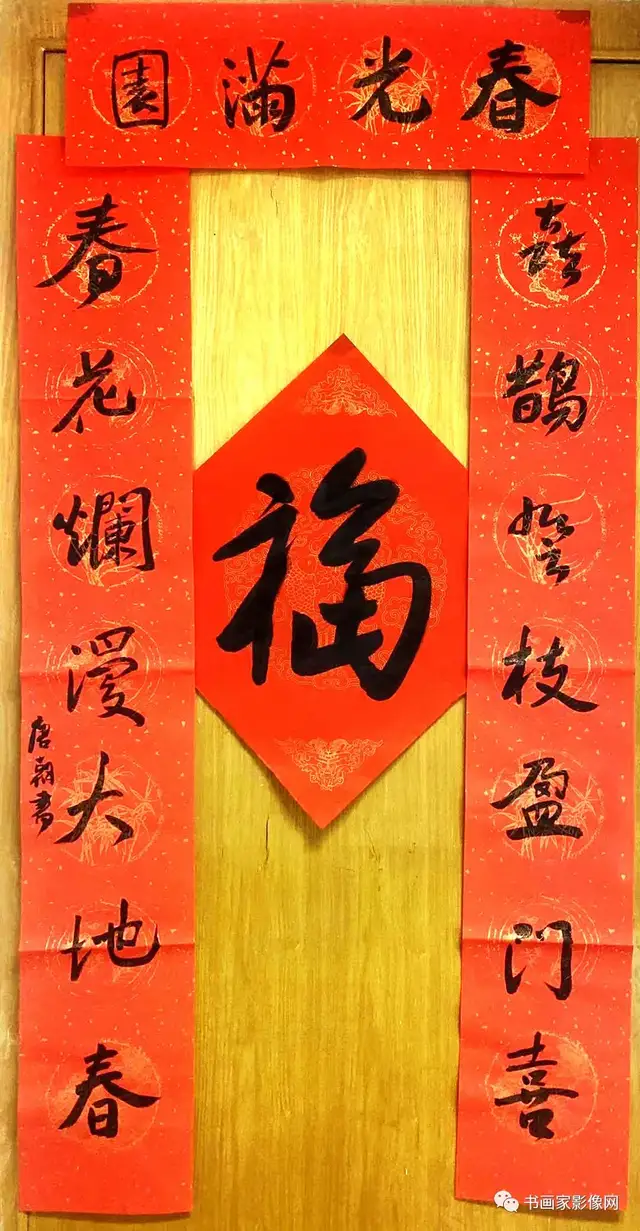 春光滿園
㐂鵲登枝盈门喜
春花爛漫大地春
唐 書
福
书画家影像网